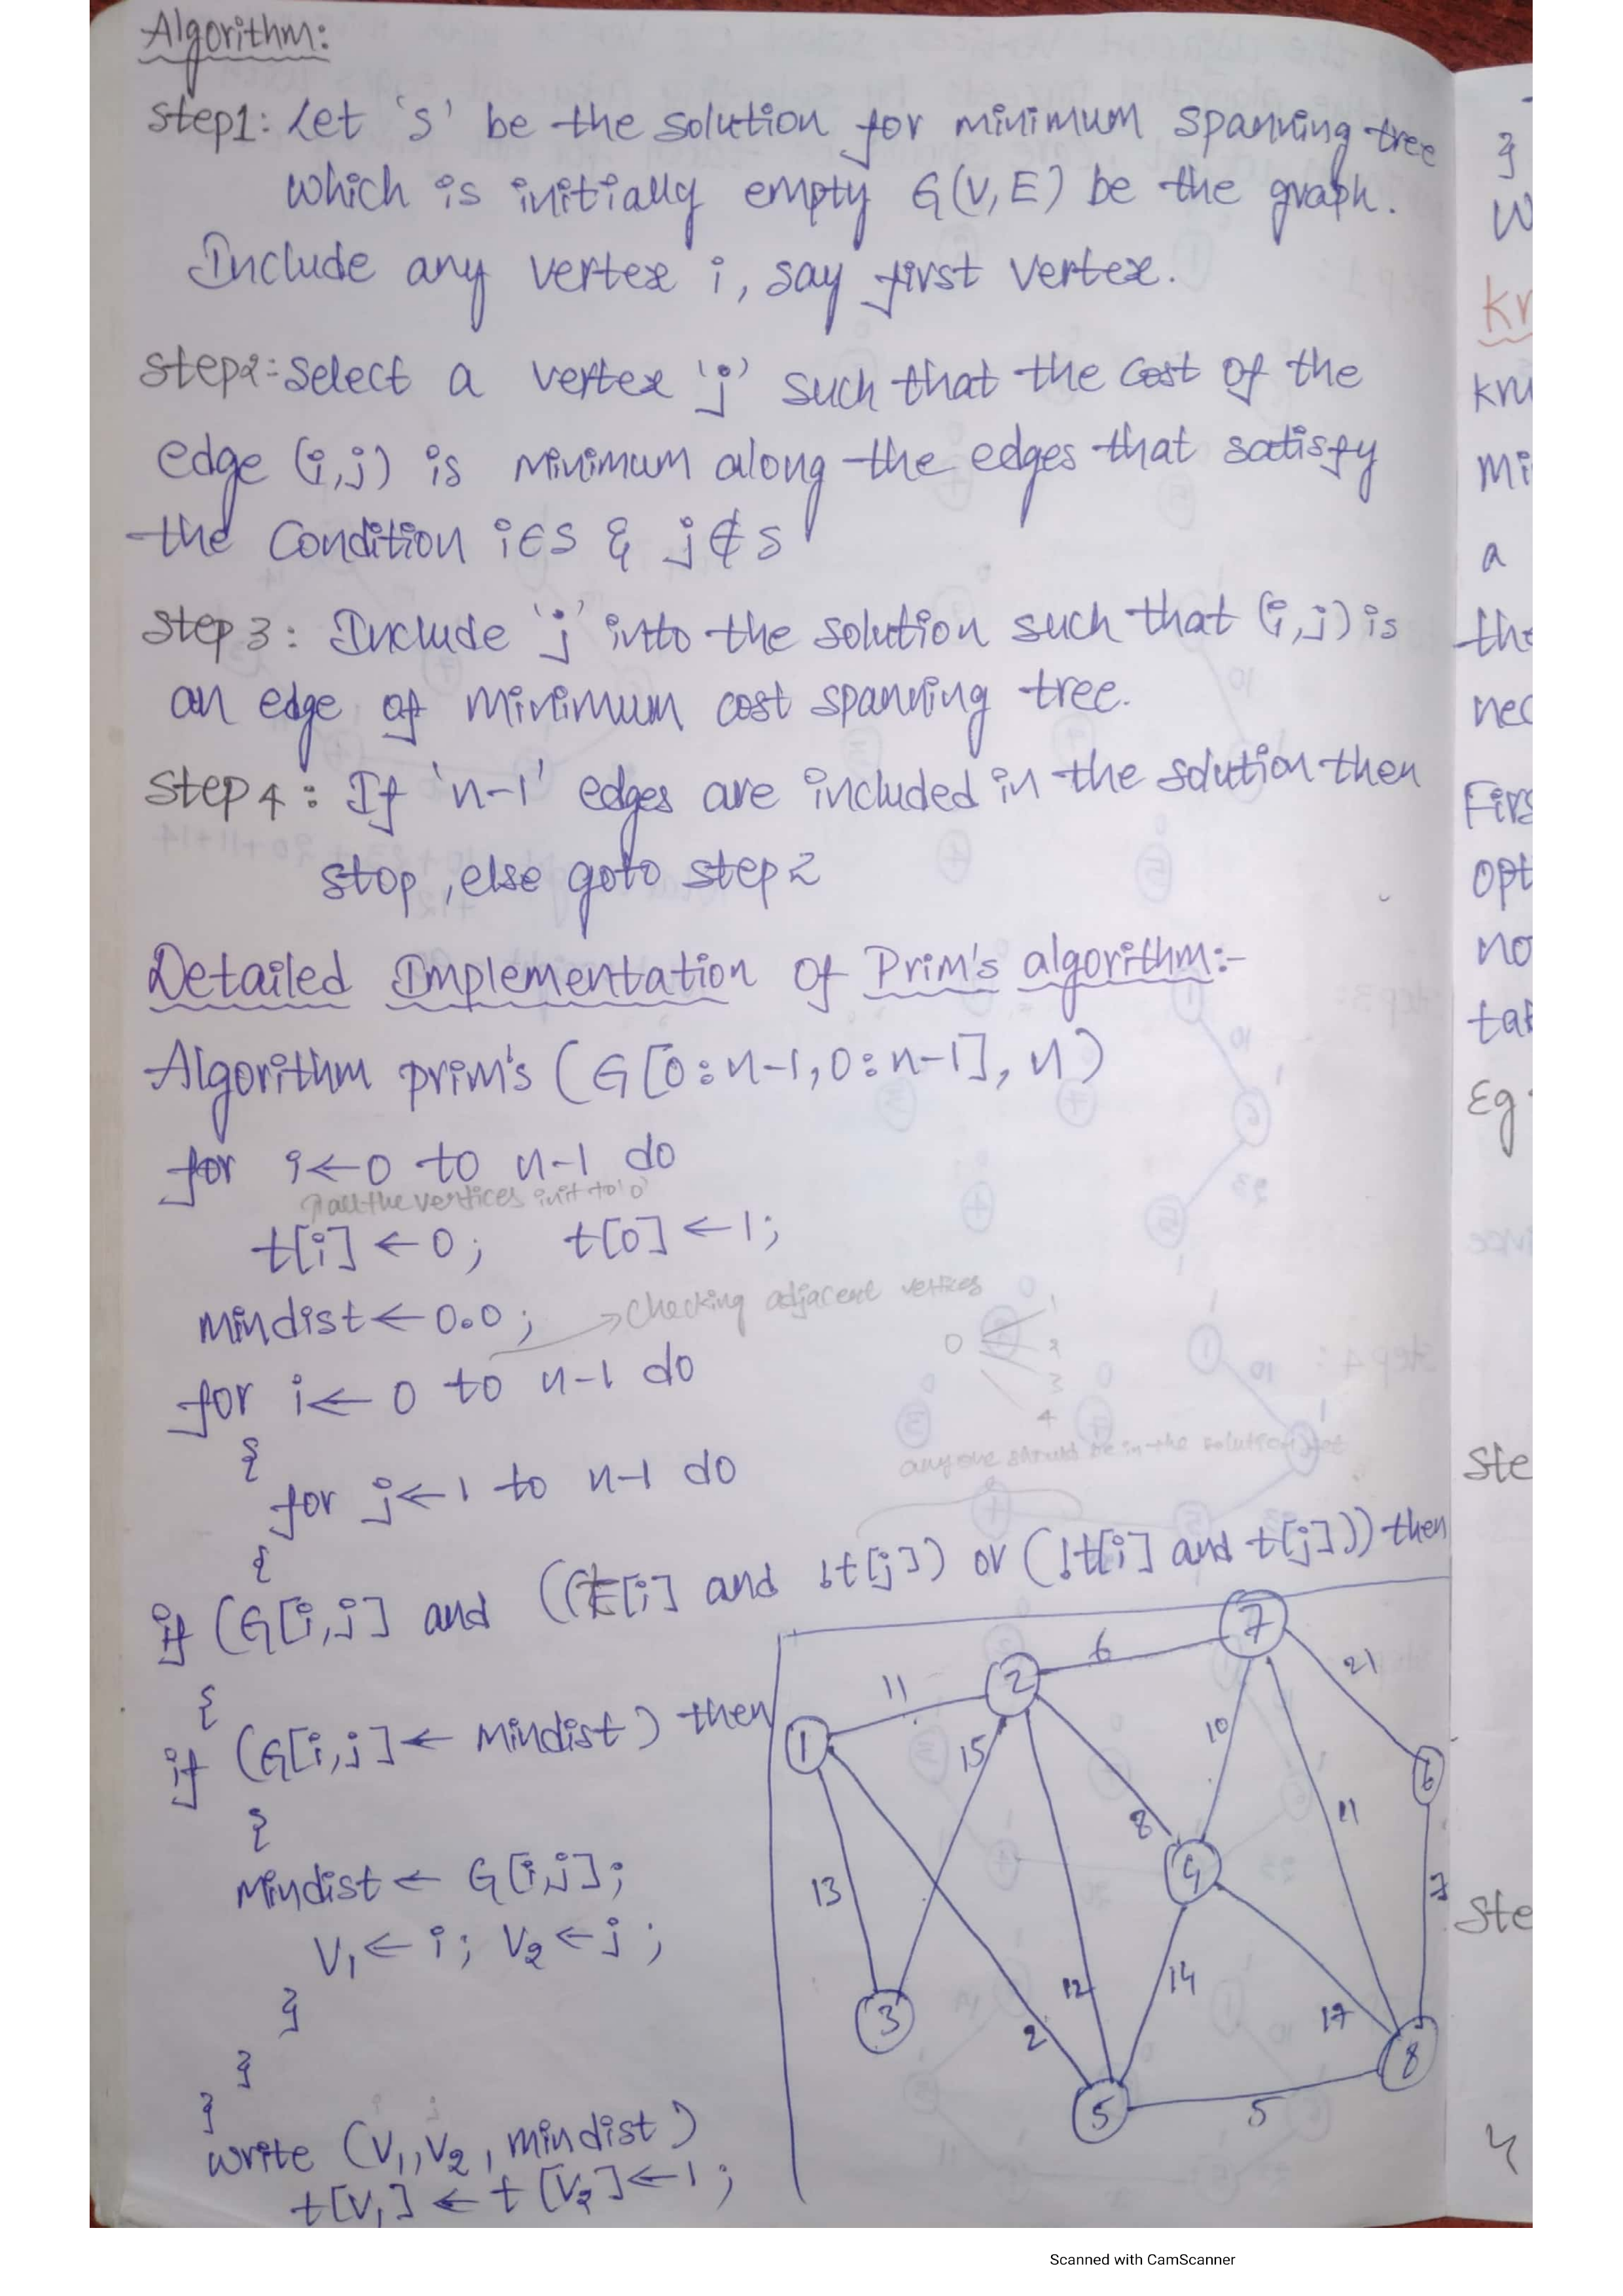 Algorithm:
Step1: Let 's' be the solution for minimum spanning tree
which is initially empty G(V,E) be the graph.
Include any vertex i, say first vertex.
Step2: Select a vertex 'j' such that the cost of the
edge (i,j) is minimum along the edges that satisfy
the condition i∈S & j∉S
Step 3: Include 'j' into the solution such that (i,j) is
an edge of minimum cost spanning tree.
Step 4: If 'n-1' edges are included in the solution then
stop, else goto step 2
Detailed Implementation of Prim's algorithm:-
Algorithm prim's (G[0:n-1,0:n-1], n)
for i←0 to n-1 do
all the vertices init to '0'
t[i]←0; t[0]←1;
mindist←0.0; →checking adjacent vertices
0 1
2
3
4
for i← 0 to n-1 do
{
for j←1 to n-1 do
anyone should be in the solution set
{
if (G[i,j] and ((t[i] and !t[j]) or (!t[i] and t[j])) then
{
if (G[i,j]← mindist) then
{
mindist← G[i,j];
V1← i; V2←j;
}
}
}
write (V1,V2, mindist)
t[V1]← t[V2]←1;
7
6
2
21
11
1
15
10
6
8
11
4
13
7
3
12
14
17
2
8
5
5
}
W
Kr
Kru
Mi
a
the
nec
Firs
opt
no
tak
Eg
Ste
Ste
Scanned with CamScanner